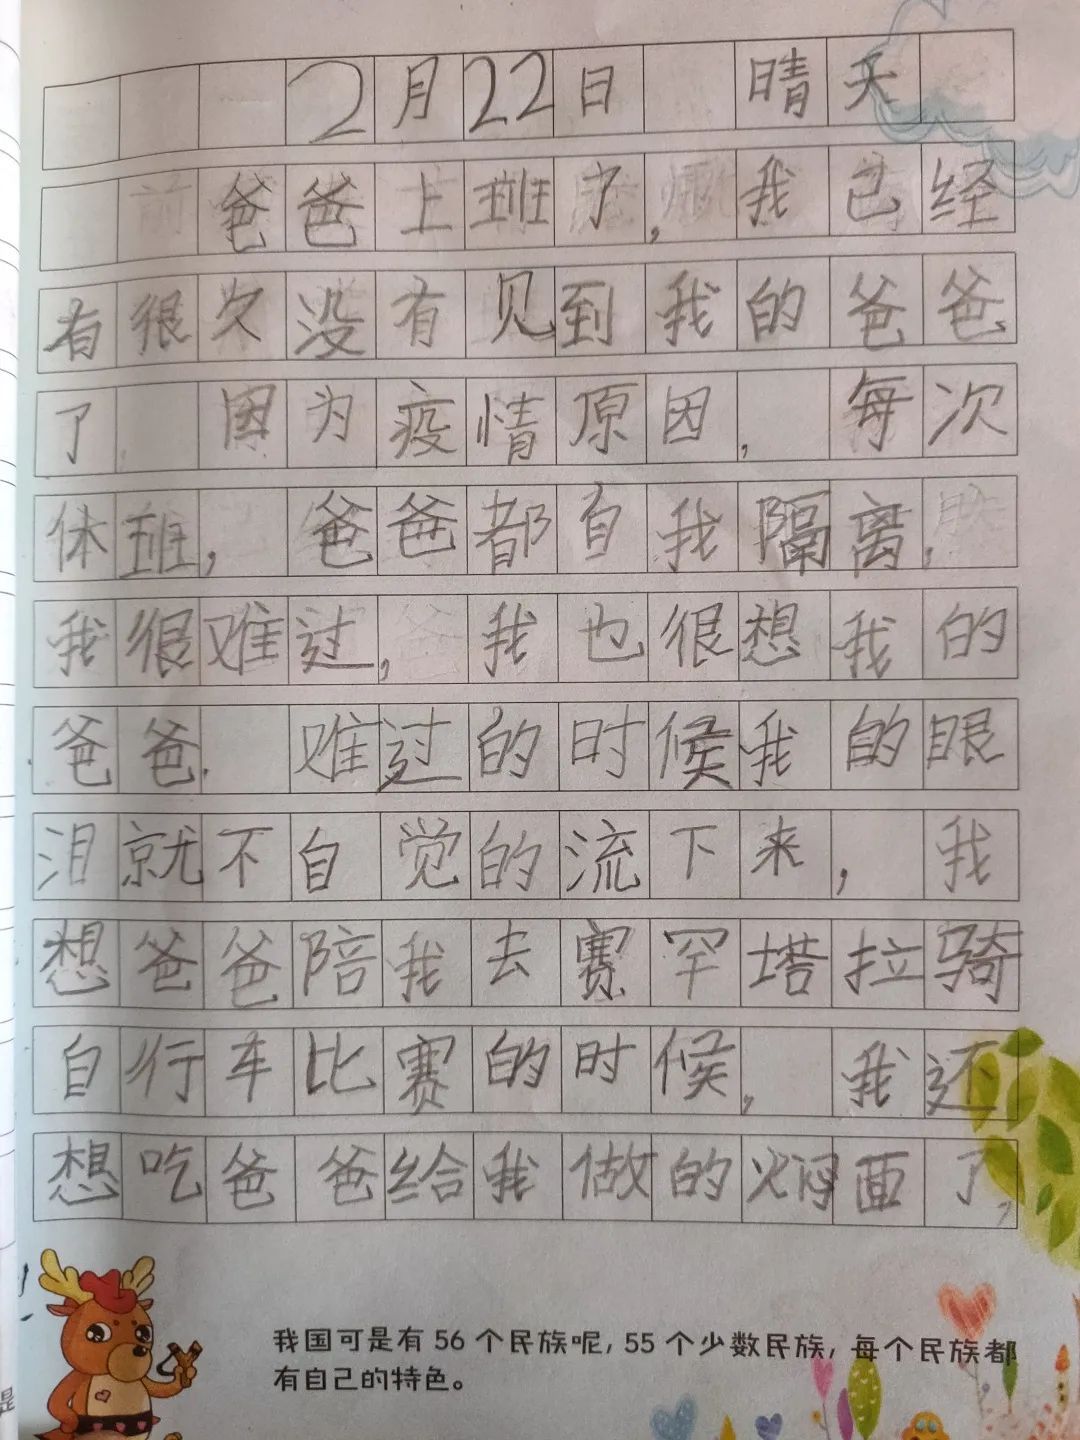 2月22日 晴天
爸爸上班了,我已经
有很久没有见到我的爸爸
了 因为疫情原因,每次
休班,爸爸都自我隔离,
我很难过,我也很想我的
爸爸.难过的时候我的眼
泪就不自觉的流下来,我
想爸爸陪我去赛罕塔拉骑
自行车比赛的时候,我还
想吃爸爸给我做的焖面了,
我国可是有 56 个民族呢, 55 个少数民族, 每个民族都
有自己的特色。
是